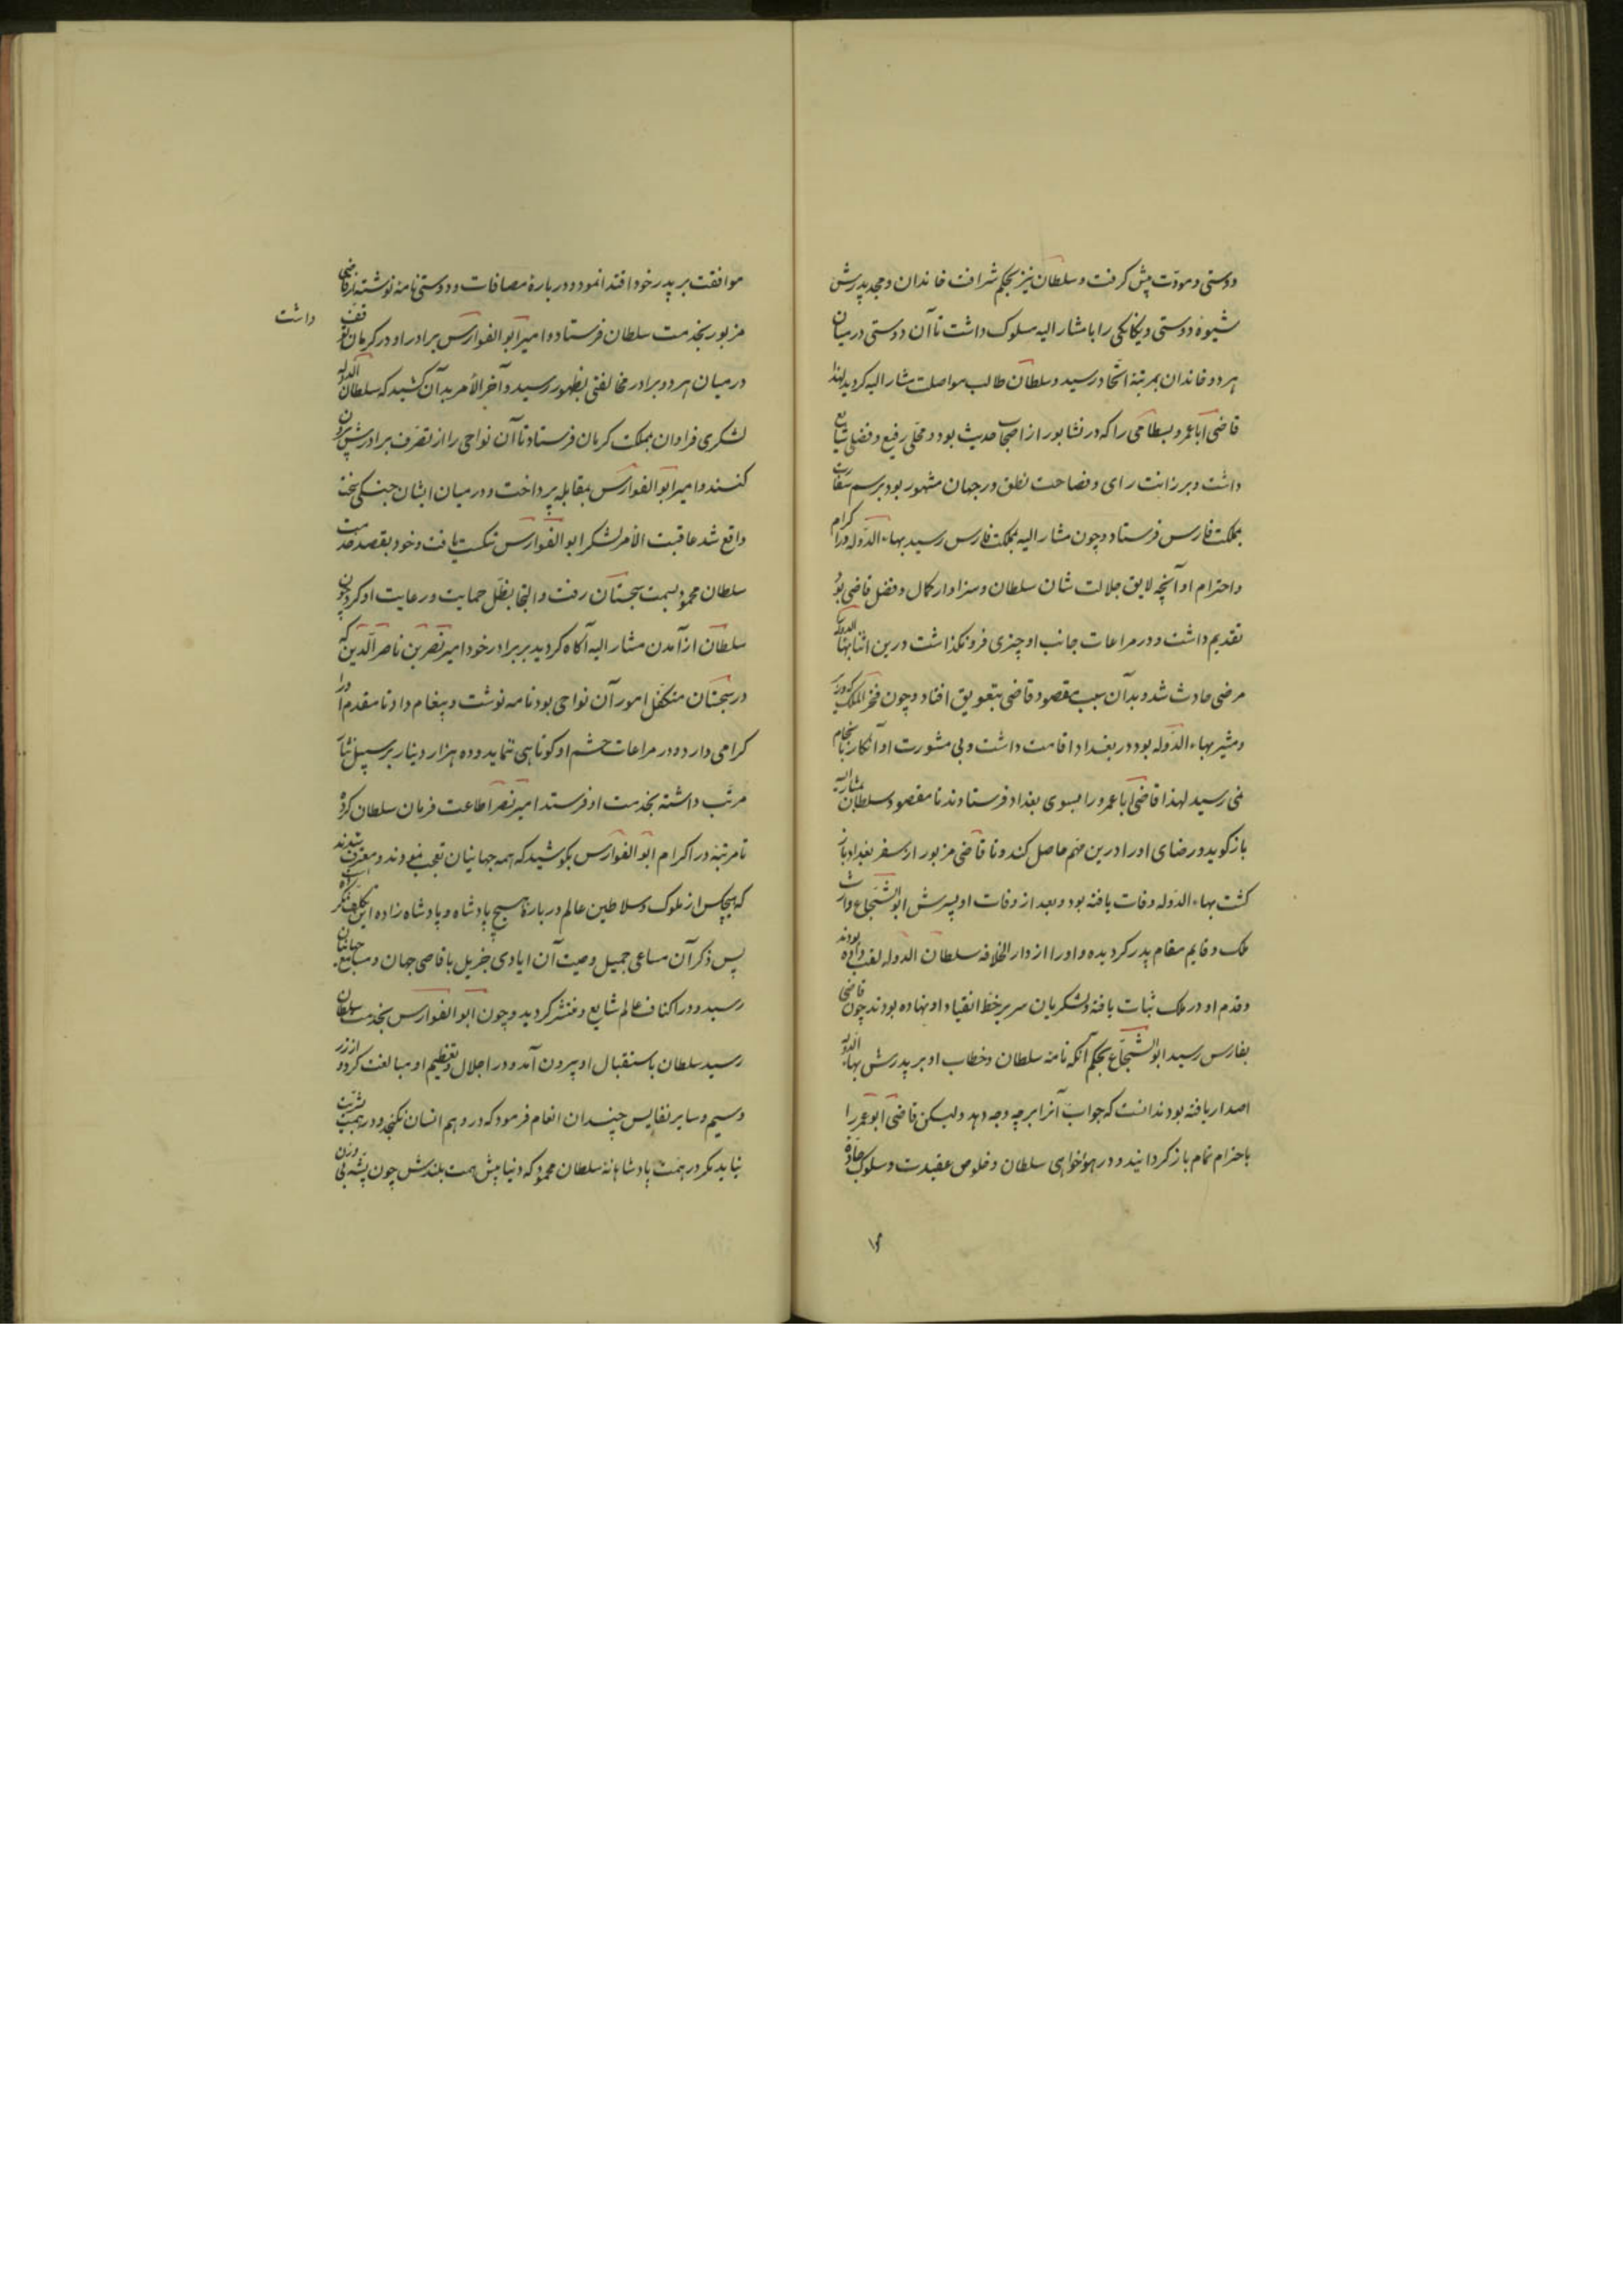 دوستی و مودّت پیش کرفت و سلطان نیز بحکم شرافت خاندان و مجد پدرش
شیوهٔ دوستی و یکانکی را با مشار الیه مسلوک داشت تا آن دوستی در میان
هر دو خاندان بمرتبهٔ اتحاد رسید و سلطان طالب مواصلت مشار الیه کردید لهذا
قاضی ابا عمرو بسطامی را که در نشابور از اصحاب حدیث بود و محلّی رفیع و فضلی شایع
داشت و برزانت رای و فصاحت نطق در جهان مشهور بود برسم سفارت
بمملکت فارس فرستاد و چون مشار الیه بمملکت فارس رسید بهاء الدّوله در اکرام
و احترام او آنچه لایق جلالت شان سلطان و سزاوار کمال و فضل قاضی بود
تقدیم داشت و در مراعات جانب او چیزی فرو نکذاشت درین اثنا بهاء الدوله
مرضی حادث شد و بدآن سبب مقصود قاضی بتعویق افتاد و چون فخر الملک که وزیر
و مشیر بهاء الدّوله بود در بغداد اقامت داشت و بی مشورت او آنکار بانجام
نمی رسید لهذا قاضی ابا عمرو را بسوی بغداد فرستادند تا مقصود سلطان بمشار الیه
باز کوید و رضای او را درین مهم حاصل کند و تا قاضی مزبور از سفر بغداد باز
کشت بهاء الدّوله وفات یافته بود و بعد از وفات او پسرش ابو الشجاع وارث
ملک و قایم مقام پدر کردیده و او را از دار الخلافه سلطان الدوله لقب داده بودند
و قدم او در ملک ثبات یافته و لشکریان سر بر خطّ انقیاد او نهاده بودند چون قاضی
بفارس رسید ابو الشجاع بحکم آنکه نامهٔ سلطان و خطاب او بر پدرش بهاء الدوله
اصدار یافته بود ندانست که جواب آنرا بر چه وجه دهد ولیکن قاضی ابو عمر را
باحترام تمام باز کردانید و در هواخواهی سلطان و خلوص عقیدت و سلوک جادّهٔ
موافقت بر پدر خود اقتدا نمود و در بارهٔ مصافات و دوستی نامه نوشته از قاضی
مزبور بخدمت سلطان فرستاد و امیر ابو الفوارس برادر او در کرمان توقف
داشت
در میان هر دو برادر مخالفتی بظهور رسید و آخر الأمر بدآن کشید که سلطان الدوله
لشکری فراوان بمملکت کرمان فرستاد تا آن نواحی را از تصرّف برادرش بیرون
کنند و امیر ابو الفوارس بمقابله پرداخت و در میان ایشان جنکی سخت
واقع شد عاقبت الأمر لشکر ابو الفوارس شکست یافت و خود بقصد خدمت
سلطان محمود بسمت سجستان رفت و التجا بظل حمایت و رعایت او کرد چون
سلطان از آمدن مشار الیه آکاه کردید بر برادر خود امیر نصر بن ناصر الدّین که
در سجستان متکفّل امور آن نواحی بود نامه نوشت و پیغام داد تا مقدم او را
کرامی دارد و در مراعات حشم او کوتاهی ننماید و ده هزار دینار بر سبیل نثار
مرتّب داشته بخدمت او فرستد امیر نصر اطاعت فرمان سلطان کرده
تا مرتبهٔ در اکرام ابو الفوارس بکوشید که همه جهانیان تعجب نمودند و معترف شدند
که هیچکس از ملوک و سلاطین عالم در بارهٔ هیچ پادشاه و پادشاه زاده این تکلّف نکرده است
پس ذکر آن مساعی جمیل وصیت آن ایادی جزیل باقاصی جهان و مسامع جهانیان
رسید و در اکناف عالم شایع و منتشر کردید و چون ابو الفوارس بخدمت سلطان
رسید سلطان باستقبال او بیرون آمد و در اجلال و تعظیم او مبالغت کرد و از زر
و سیم و سایر نفایس چندان انعام فرمود که در وهم انسان نکنجد و در همت بشریّت
نیاید مکر در همّت پادشاهانهٔ سلطان محمود که دنیا پیش همت بلندش چون پشّهٔ بی وزن